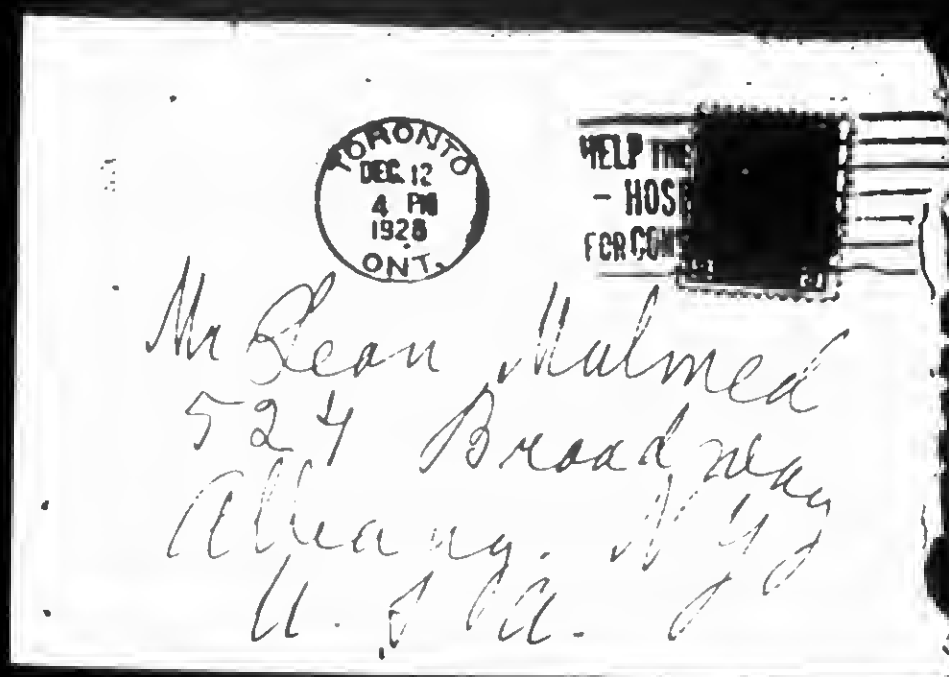 TORONTO
DEC. 12
4 PM
1928
ONT.
HELP THE
- HOSP
FOR CONS
Mr Leon Malmed
524 Broadway
Albany. N Y
U. S A.